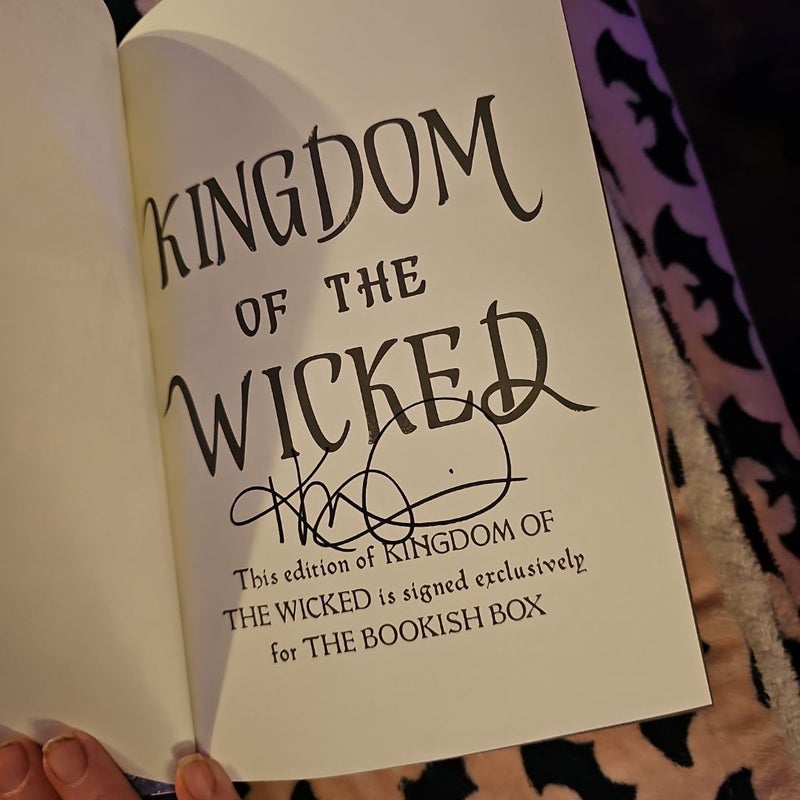 KINGDOM
OF THE
WICKED
This edition of KINGDOM OF
THE WICKED is signed exclusively
for THE BOOKISH BOX